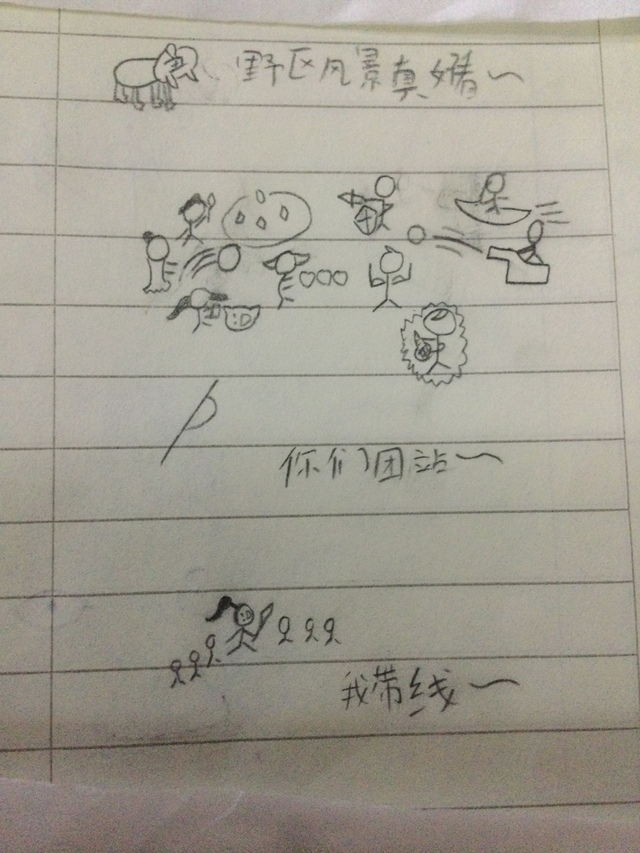 野区风景真～
你们团站～
我带线～